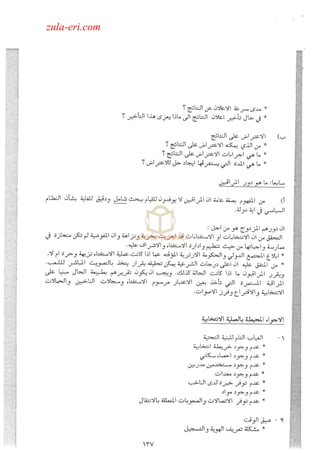 zula-eri.com
* مدى سرعة الاعلان عن النتائج ؟
* في حال تأخير اعلان النتائج الى ماذا يعزى هذا التأخير ؟
ب) الاعتراض على النتائج
* من الذي يمكنه الاعتراض على النتائج ؟
* ما هي اجراءات الاعتراض على النتائج ؟
* ما هي المدة التي يستغرقها ايجاد حل للاعتراض ؟
سابعا: ما هو دور المراقبين
أ) من المفهوم بصفة عامة ان المراقبين لا يوفدون للقيام ببحث شامل ودقيق للغاية بشأن النظام
السياسي في اية دولة.
ان دورهم المزدوج هو من اجل :
التحقق من ان الانتخابات او الاستفتاءات قد اجريت بحرية ونزاهة وان المفوضية لم تكن منحازة في
ممارسة واجباتها من حيث تنظيم وادارة الاستفتاء والاشراف عليه.
* ابلاغ المجتمع الدولي والحكومة الارترية المؤقتة عما اذا كانت عملية الاستفتاء نزيهة وحرة ام لا.
* من المتفق عليه ان اعلى درجات الشرعية يمكن تحقيقه بقرار يتخذ بالتصويت المباشر للشعب.
ويقرر المراقبون ما اذا كانت الحالة كذلك. ويجب ان يكون تقريرهم بطبيعة الحال مبنيا على
المراقبة المستمرة التي تأخذ بعين الاعتبار مرسوم الاستفتاء وسجلات الناخبين والحملات
الانتخابية والاقتراع وفرز الاصوات.
الاجواء المحيطة بالعملية الانتخابية
١ - الغياب التام للبنية التحتية
* عدم وجود خريطة انتخابية
* عدم وجود احصاء سكاني
* عدم وجود مستخدمين مدربين
* عدم وجود معدات
* عدم توفر خبرة لدى الناخب
* عدم وجود مواد
* عدم توفر الاتصالات والصعوبات المتعلقة بالانتقال
٢ - ضيق الوقت
* مشكلة تعريف الهوية والتسجيل
١٣٧